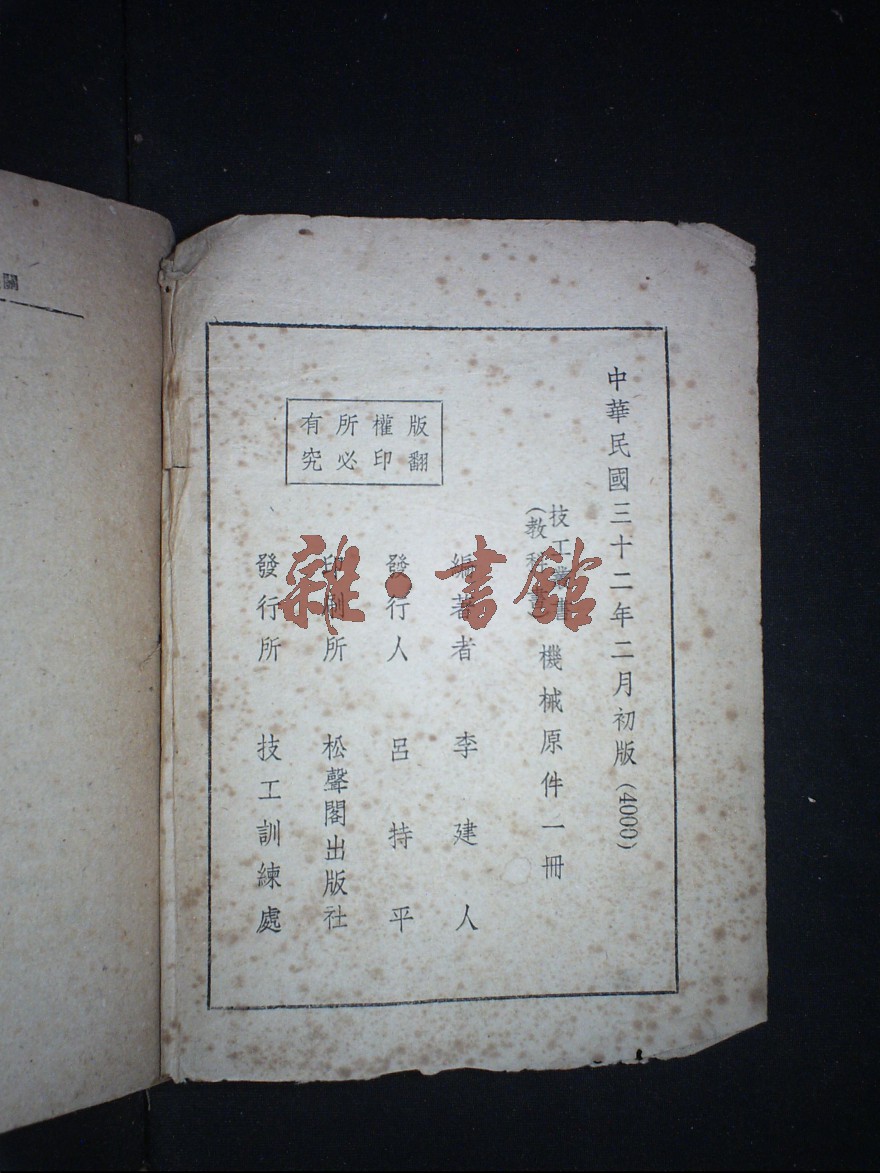 中華民國三十二年二月初版(4000)
技工叢書
(教科書)
機械原件一冊
編著者 李建人
發行人 呂持平
印刷所 松聲閣出版社
發行所 技工訓練處
版權所有
翻印必究
雜·書館